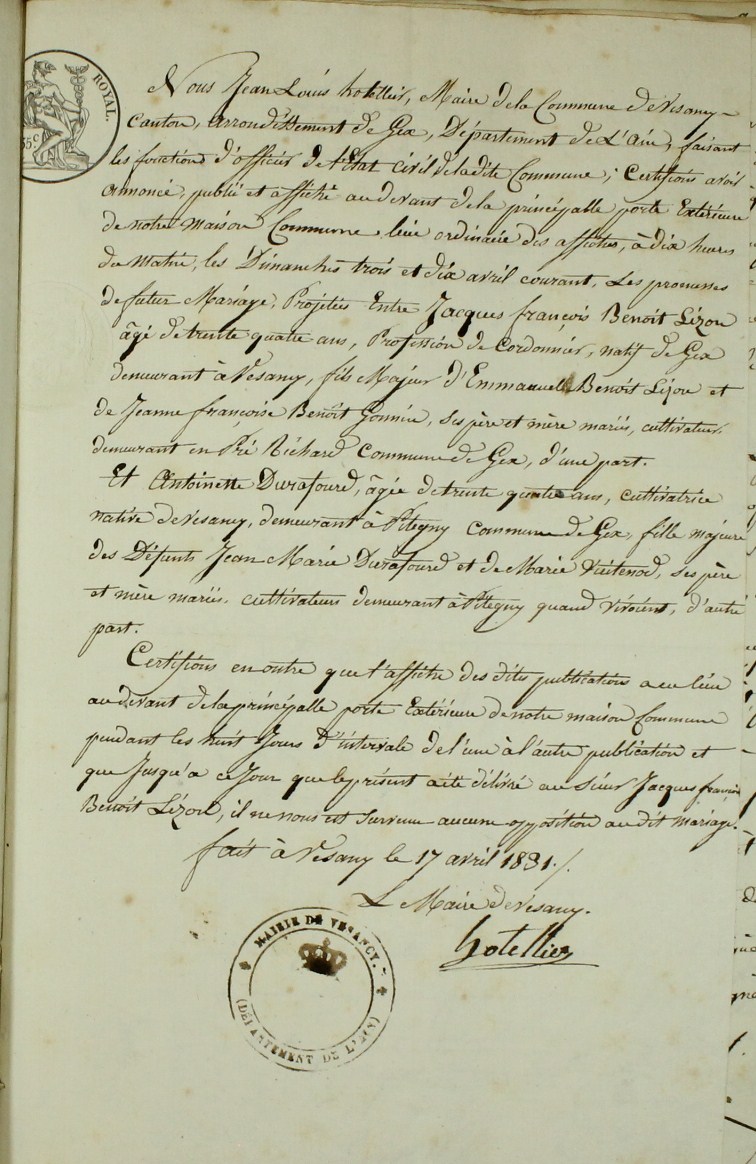 ROYAL.
35c
Nous Jean Louis hotellier, Maire de la Commune de Vesancy
Canton, arrondissement de Gex, Département de L'Ain, faisant
les fonctions d'officier de l'Etat Civil de la dite Commune; Certifions avoir
annoncé, publié et affiché au devant de la principalle porte Extérieure
de notre maison Commune lieu ordinaire des affiches, à dix heures
du matin, les Dimanches trois et dix avril courant, les promesses
de futur Mariage, Projetées Entre Jacques françois Benoit Lizon
âgé de trente quatre ans, Profession de Cordonnier, natif de Gex
demeurant à Vesancy, fils Majeur d'Emmanuel Benoit Lizon et
de Jeanne françoise Benoit Gonnin, ses père et mère mariés, cultivateurs
demeurant en Pré Richard Commune de Gex, d'une part.
Et Antoinette Durafourd, âgée de trente quatre ans, cultivatrice
native de Vesancy, demeurant à Pitegny Commune de Gex, fille majeure
des Défunts Jean Marie Durafourd et de Marie Vuitenod, ses père
et mère mariés, cultivateurs demeurant à Pitegny quand vivoient, d'autre
part.
Certifions en outre que l'affiche des dites publications a eu lieu
au devant de la principalle porte Extérieure de notre maison Commune
pendant les huit Jours d'intervale de l'une à l'autre publication et
que Jusqu'a ce Jour que le présent a été délivré au Sieur Jacques françois
Benoit Lizon, il ne nous est survenu aucune opposition au dit mariage.
fait à Vesancy le 17 avril 1831./.
Le Maire de Vesancy.
hotellier
MAIRIE DE VESANCY.
(DÉPARTEMENT DE L'AIN)